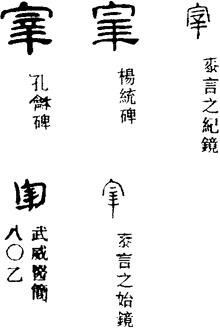 宰
桼言之紀鏡
宰
楊統碑
宰
孔龢碑
宰
桼言之始鏡
宰
武威醫簡
八〇乙